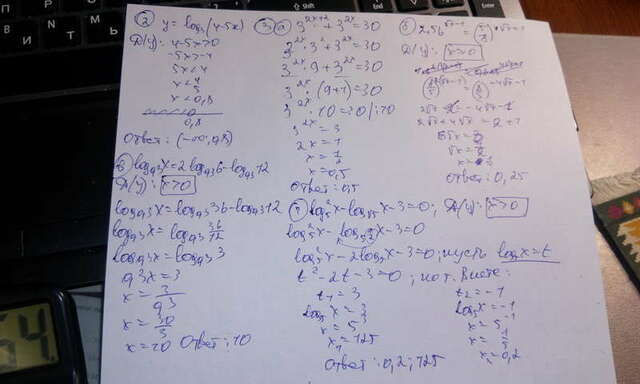 ② y = log₅(4-5x)
D(y): 4-5x>0
-5x>-4
5x<4
x<4/5
x<0,8
0,8
Ответ: (-∞; 0,8)
③ а) 3^(2x+2) + 3^(2x) = 30
3^(2x) · 3² + 3^(2x) = 30
3^(2x) · 9 + 3^(2x) = 30
3^(2x) · (9+1) = 30
3^(2x) · 10 = 30 /:10
3^(2x) = 3
2x = 1
x = 1/2
x = 0,5
Ответ: 0,5
D(y): x>0
Ответ: 0,25
в) log₀,₃x = 2log₀,₃6 - log₀,₃12
D(y): x>0
log₀,₃x = log₀,₃36 - log₀,₃12
log₀,₃x = log₀,₃ 36/12
log₀,₃x = log₀,₃3
0,3x = 3
x = 3/0,3
x = 30/3
x = 10 Ответ: 10
D(y): x>0
log₅²x - 2log₅x - 3 = 0; пусть log₅x = t
t² - 2t - 3 = 0; по т. Виета:
t₁ = 3
t₂ = -1
log₅x = 3
x = 5³
x₁ = 125
log₅x = -1
x = 5⁻¹
x = 1/5
x₂ = 0,2
Ответ: 0,2; 125